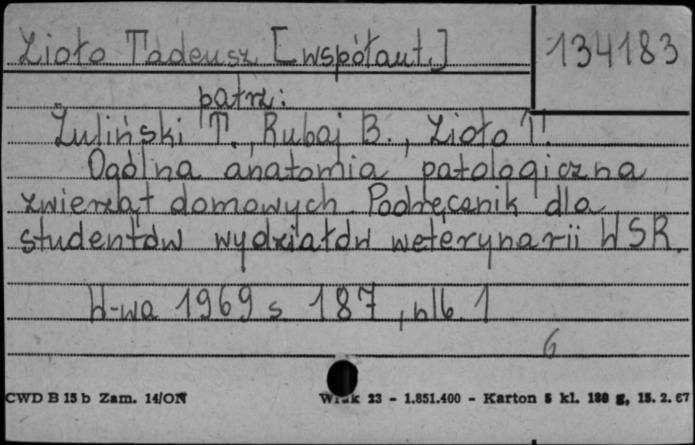 Zioło Tadeusz [współaut.] 134183
patrz:
Żuliński T., Rubaj B., Zioło T.
Ogólna anatomia patologiczna
zwierząt domowych. Podręcznik dla
studentów wydziałów weterynarii WSR.
W-wa 1969 s. 187, nlb. 1
6
CWD B 15 b Zam. 14/ON W-zak 23 - 1.851.400 - Karton 5 kl. 180 g, 15. 2. 67